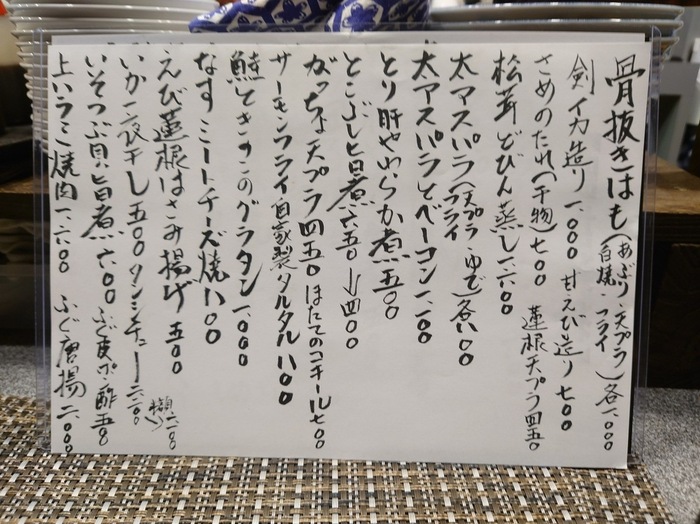 骨抜きはも(あぶり・天プラ・白焼・フライ)各一、〇〇〇
剣イカ造り一、〇〇〇 甘えび造り七〇〇
さめのたれ(干物)七〇〇 蓮根天プラ四五〇
松茸どびん蒸し一、六〇〇
太アスパラ(天プラ・ゆで・フライ)各八〇〇
太アスパラとベーコン一、一〇〇
とり肝やわらか煮五〇〇
とこぶし旨煮六五〇→四〇〇
がっちょ天プラ四五〇 ほたてのコキール七〇〇
サーモンフライ自家製タルタル八〇〇
鮭ときのこのグラタン一、〇〇〇
なすミートチーズ焼八〇〇
えび蓮根はさみ揚げ五〇〇
いか一夜干し五〇〇 タンシチュー二、二〇〇
いそつぶ貝旨煮六〇〇 ふぐ皮ポン酢五〇〇
上ハラミ焼肉一、六〇〇 ふぐ唐揚二、〇〇〇